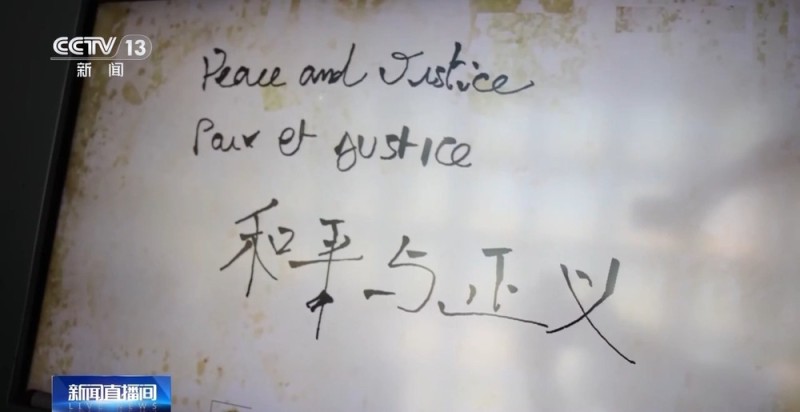 CCTV 13
新闻
Peace and Justice
Paix et JUSTICE
和平与正义
新闻直播间
LIVE NEWS